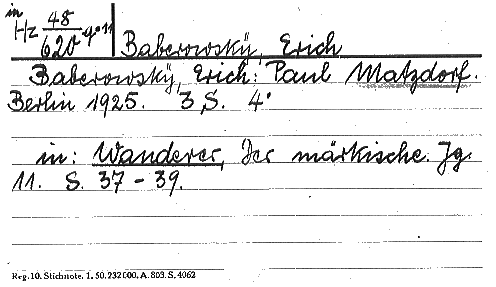 in
Hz 48/620 q° 11
Baberowskÿ, Erich
Baberowskÿ, Erich: Paul Matzdorf.
Berlin 1925. 3 S. 4°
in: Wanderer, Der märkische. Jg.
11. S. 37-39.
Reg. 10. Stichnote. 1. 50. 232000. A. 803. S. 4062